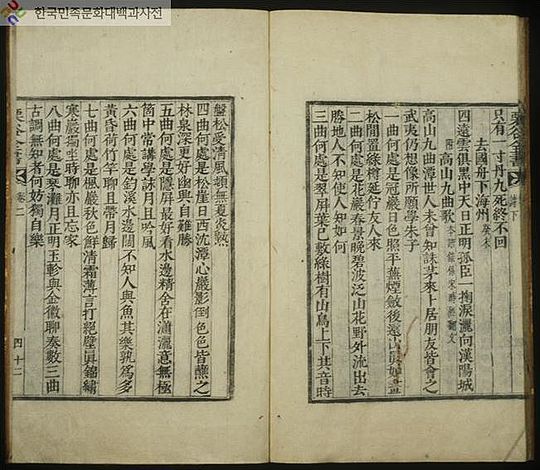 한국민족문화대백과사전
只有一寸丹九死終不回
去國舟下海州 癸未
四遠雲俱黑中天日正明孤臣一掬淚灑向漢陽城
附 高山九曲歌
高山九曲潭世人未曾知誅茅來卜居朋友皆會之
武夷仍想像所願學朱子
一曲何處是冠巖日色照平蕪煙斂後遠山眞如畫
松間置綠樽延佇友人來
二曲何處是花巖春景晚碧波泛山花野外流出去
勝地人不知使人知如何
三曲何處是翠屛葉已敷綠樹有山鳥上下其音時
盤松受淸風頓無夏炎熱
四曲何處是松崖日西沈潭心巖影倒色色皆蘸之
林泉深更好幽興自難勝
五曲何處是隱屛最好看水邊精舍在瀟灑意無極
箇中常講學詠月且吟風
六曲何處是釣溪水邊闊不知人與魚其樂孰爲多
黃昏荷竹竿聊且帶月歸
七曲何處是楓巖秋色鮮淸霜薄言打絕壁眞錦繡
寒巖獨坐時聊亦且忘家
八曲何處是琴灘月正明玉軫與金徽聊奏數三曲
古調無知者何妨獨自樂
栗谷全書 卷二 四十二